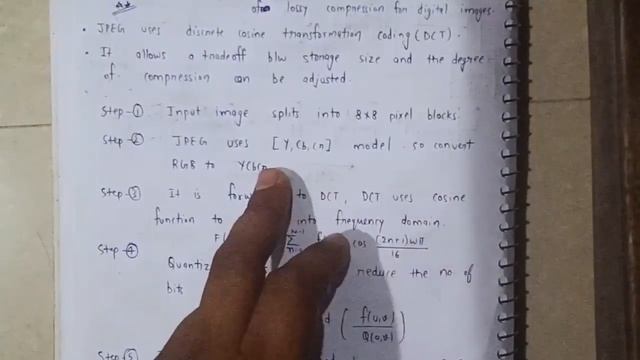 of lossy compression for digital images.
• JPEG uses discrete cosine transformation coding (DCT).
• It allows a tradeoff b/w storage size and the degree
of compression can be adjusted.
Step-① Input image splits into 8*8 pixel blocks.
Step-② JPEG uses [Y, Cb, Cr] model so convert
RGB to YCbCr
Step-③ It is to DCT, DCT uses cosine
function to into frequency domain.
Σ cos (2n+1)ωπ / 16
Step-④ reduce the no of
bits
( f(u,v) / Q(u,v) )
Step-⑤